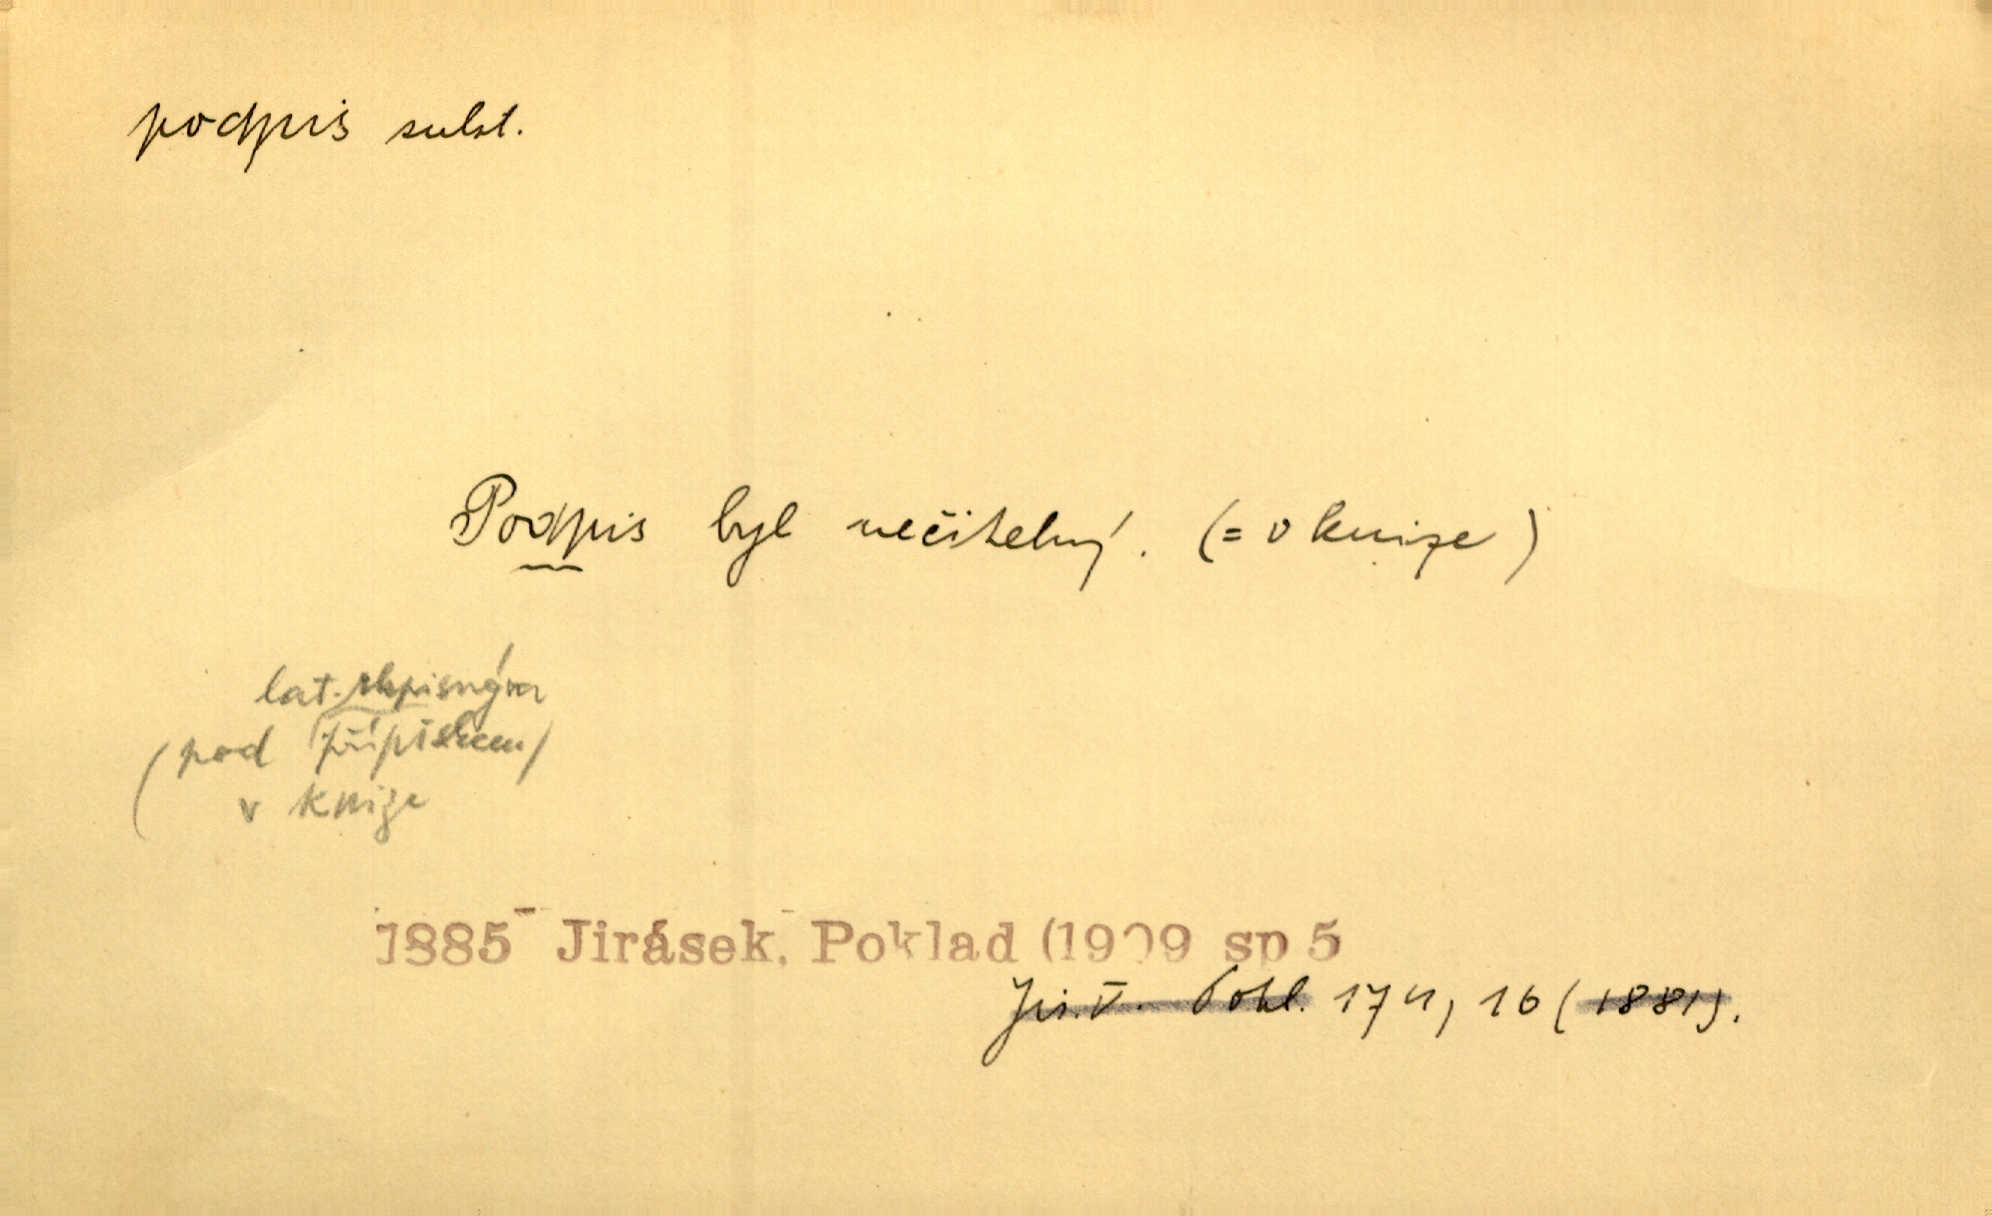 podpis subst.
Podpis byl nečitelný. (= v knize)
lat. rkpisným
(pod přípiskem)
v knize
1885 Jirásek, Poklad (1909 sp 5
Jir. V. Pokl. 174, 16 (1881).